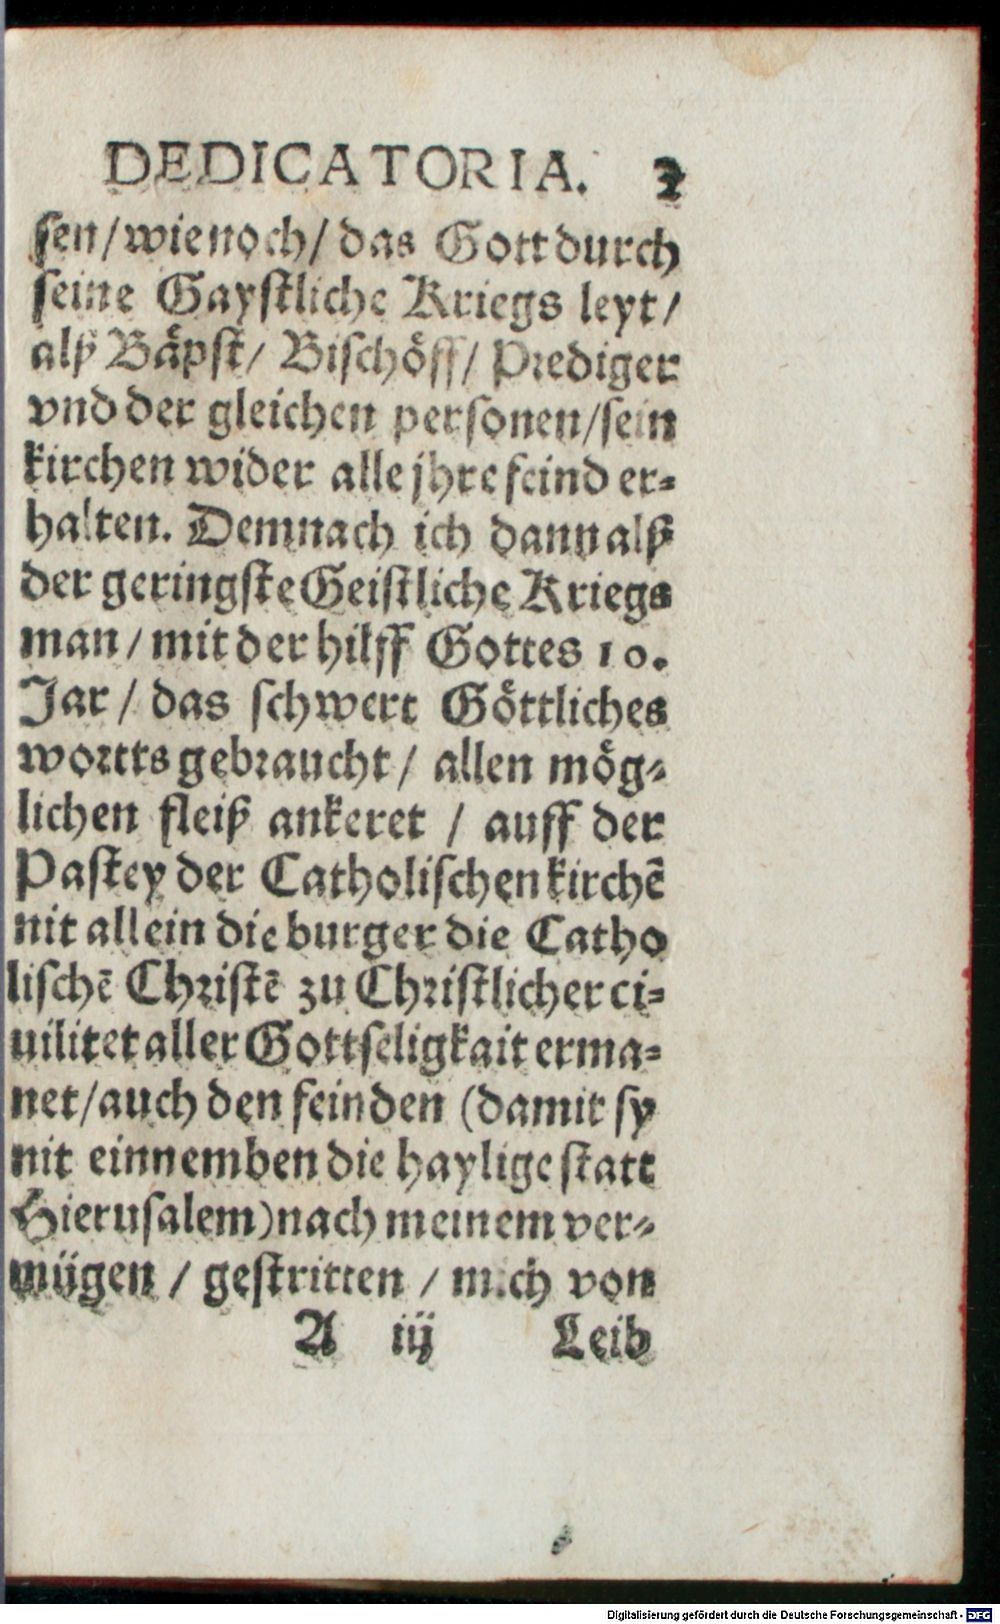 DEDICATORIA. 2
ſen/wie noch/ das Gott durch
ſeine Gayſtliche Kriegs leyt/
alß Bäpſt/ Biſchöff/ Prediger
vnd der gleichen perſonen/ſein
kirchen wider alle jhre feind er-
halten. Demnach ich dann alß
der geringſte Geiſtliche Kriegs
man/mit der hilff Gottes 10.
Jar/ das ſchwert Göttliches
wortts gebraucht/ allen mög-
lichen fleiß ankeret / auff der
Paſtey der Catholiſchen kirchẽ
nit allein die burger die Catho
liſchẽ Chriſtẽ zu Chriſtlicher ci-
uilitet aller Gottſeligkait erma-
net/auch den feinden (damit ſy
nit einnemben die haylige ſtatt
Hieruſalem) nach meinem ver-
mügen / geſtritten / mich von
A iij Leib
Digitalisierung gefördert durch die Deutsche Forschungsgemeinschaft - DFG